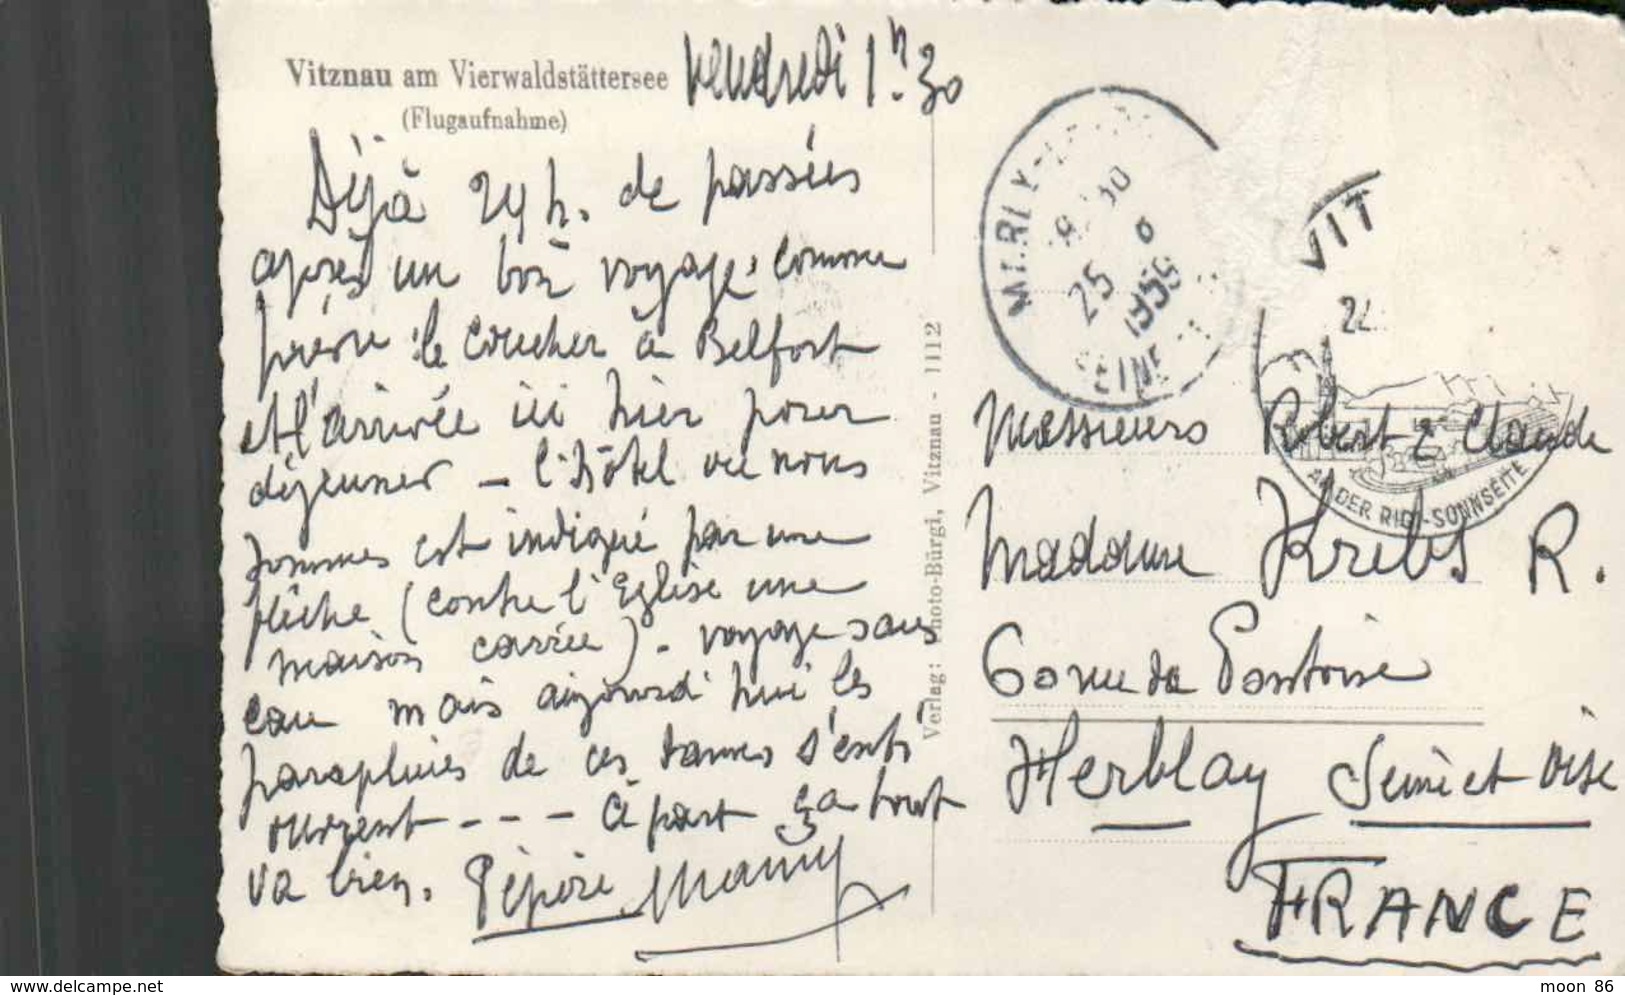 Vitznau am Vierwaldstättersee
(Flugaufnahme)
Vendredi 1h.30
Déjà 24 h. de passées
après un bon voyage, comme
prévu le coucher à Belfort
et l'arrivée ici hier pour
déjeuner - l'hôtel où nous
sommes est indiqué par une
flèche (contre l'Eglise une
maison carrée) - voyage sans
eau mais aujourd'hui les
parapluies de ces dames s'entr'
ouvrent - - - à part ça tout
va bien. Pépère Mamy
Verlag: Photo-Bürgi, Vitznau - 1112
25 6
1959
SEINE
VIT
AN DER RIGI-SONNSEITE
Messieurs Robert & Claude
Madame Krebs R.
60 rue de Pontoise
Herblay Seine et Oise
FRANCE
www.delcampe.net
moon 86